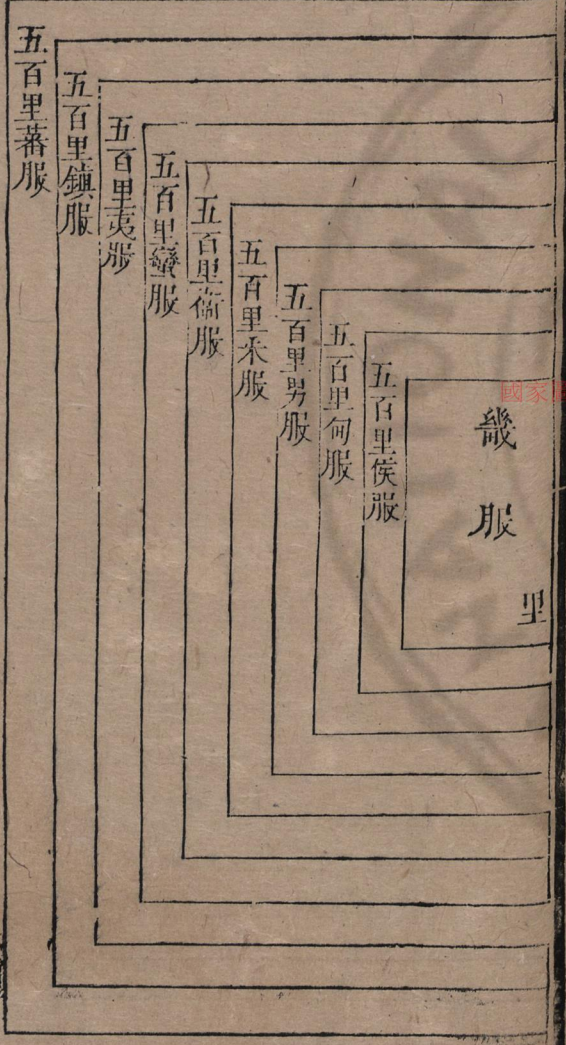 畿服
里
五百里侯服
五百里甸服
五百里男服
五百里采服
五百里衞服
五百里蠻服
五百里夷服
五百里鎮服
五百里蕃服
國家